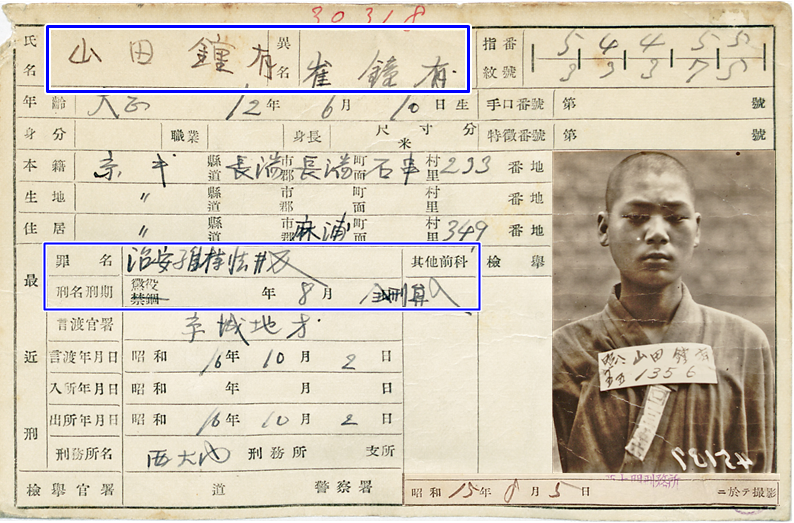 30318
氏名 山田 鐘有 異名 崔 鐘有 指紋番號 5 4 4 5 5
3 3 3 7 5
年齡 大正 12年 6月 10日生 手口番號 第 號
身分 職業 身長 尺寸分 米 特徵番號 第 號
本籍 京 縣道 長湍 市郡 長湍 町面 石串 村里 233 番地
生地 〃 縣道 市郡 町面 村里 番地
住居 〃 縣道 市郡 麻浦 町面 村里 349 番地
最近刑
罪名 治安維持法 其他前科 檢擧
刑名刑期 懲役 禁錮 年 8月
言渡官署 京城地方
言渡年月日 昭和 16年 10月 2日
入所年月日 昭和 年 月 日
出所年月日 昭和 16年 10月 2日
刑務所名 西大門 刑務所 支所
檢擧官署 道 警察署
山田 鐘有
1356
45137
昭和 15年 8月 5日 ニ於テ撮影